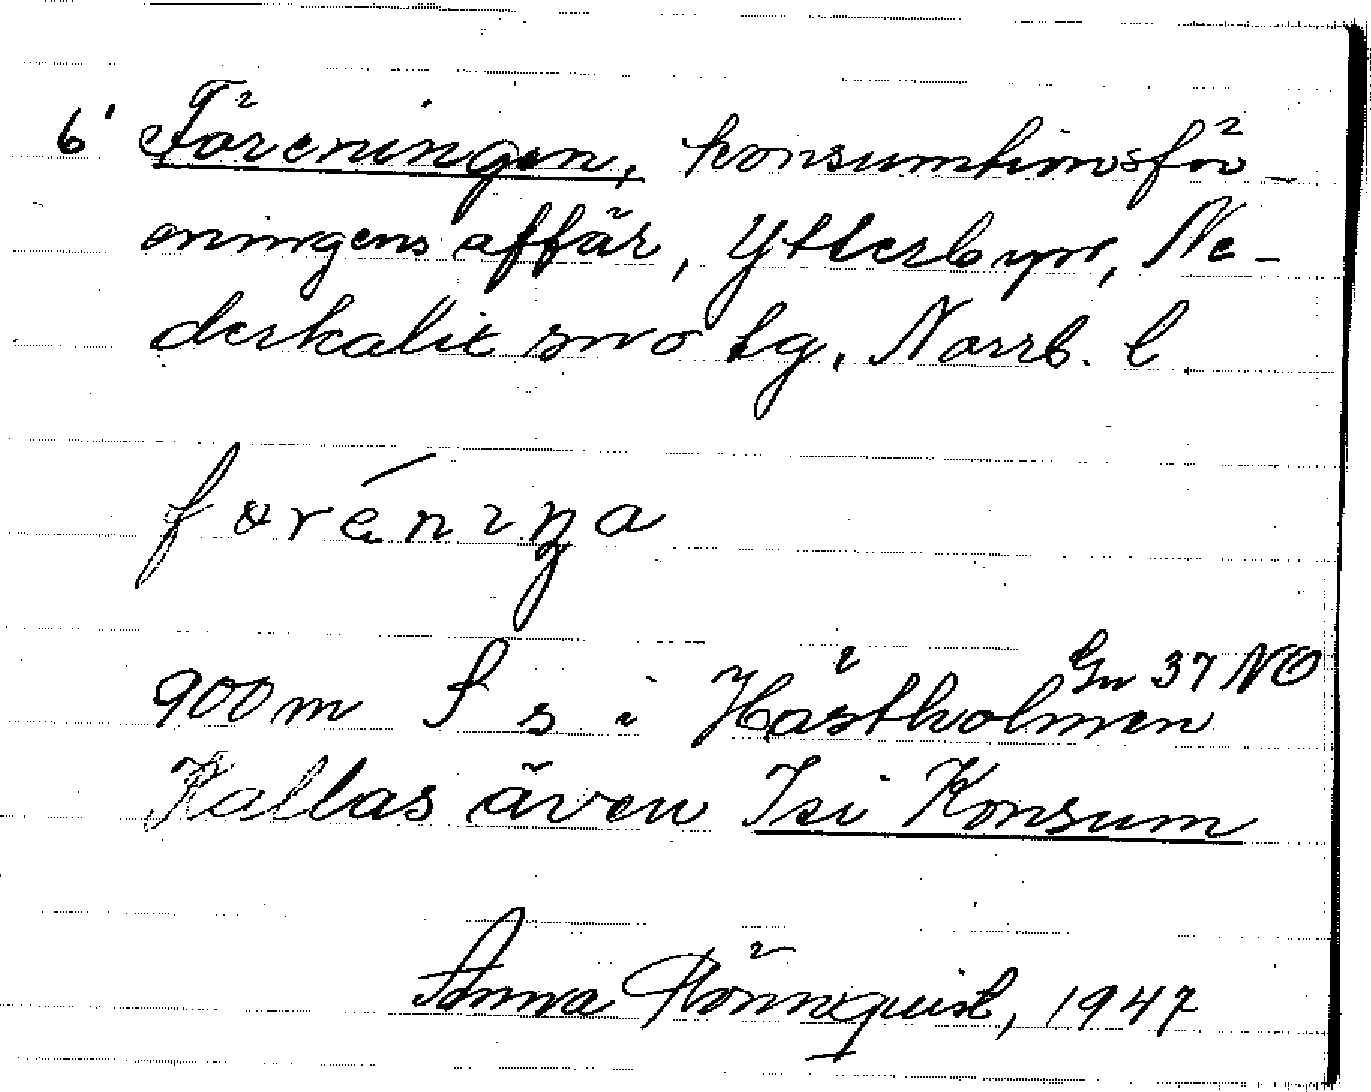 6' Föreningen, konsumtionsför-
eningens affär, Ytterbyn, Ne-
derkalix sno tg, Norrb. l
føréniŋa
Gn 37 NO
900 m S s i Hästholmen
Kallas även Isi Konsum
Anna Rönnquist, 1947